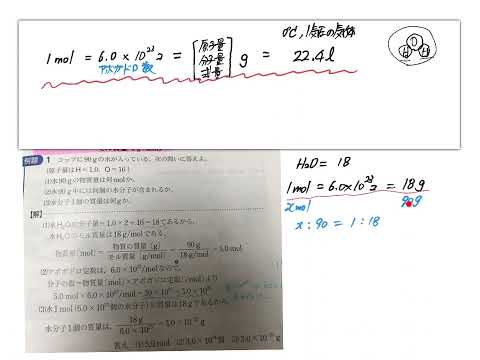 1mol = 6.0×10²³コ = [原子量 分子量 式量] g = 22.4l
0℃, 1気圧の気体
アボガドロ数
H O H
例題 1 コップに90gの水が入っている。次の問いに答えよ。
(原子量はH=1.0, O=16)
(1)水90gの物質量は何molか。
(2)水90g中には何個の水分子が含まれるか。
(3)水分子1個の質量は何gか。
【解】
(1)水H₂Oの分子量=1.0×2+16=18であるから,
水H₂Oのモル質量は18g/molである。
物質量〔mol〕= 物質の質量〔g〕/モル質量〔g/mol〕 = 90g/18g/mol = 5.0mol
(2)アボガドロ定数は, 6.0×10²³/molなので,
分子の数=物質量〔mol〕×アボガドロ定数〔/mol〕より
5.0mol×6.0×10²³/mol=30×10²³=3.0×10²⁴
(3)水1mol(6.0×10²³個の水分子)の質量は18gであるから,
水分子1個の質量は, 18g/6.0×10²³ = 3.0×10⁻²³g
答え (1)5.0mol (2)3.0×10²⁴個 (3)3.0×10⁻²³g
H₂O = 18
1mol = 6.0×10²³コ = 18g
xmol 90g
x : 90 = 1 : 18